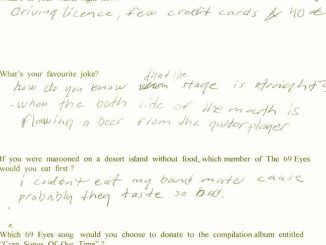 Driving licence, few credit cards & 40 €
What's your favourite joke?
how do you know that the stage is straight?
- when the both side of the mouth is
flowing a beer from the quiterplayer
If you were marooned on a desert island without food, which member of The 69 Eyes
would you eat first ?
i couldn't eat my band mates cause
probably they taste so bad.
Which 69 Eyes song would you choose to donate to the compilation album entitled
"Crap Songs Of Our Time" ?